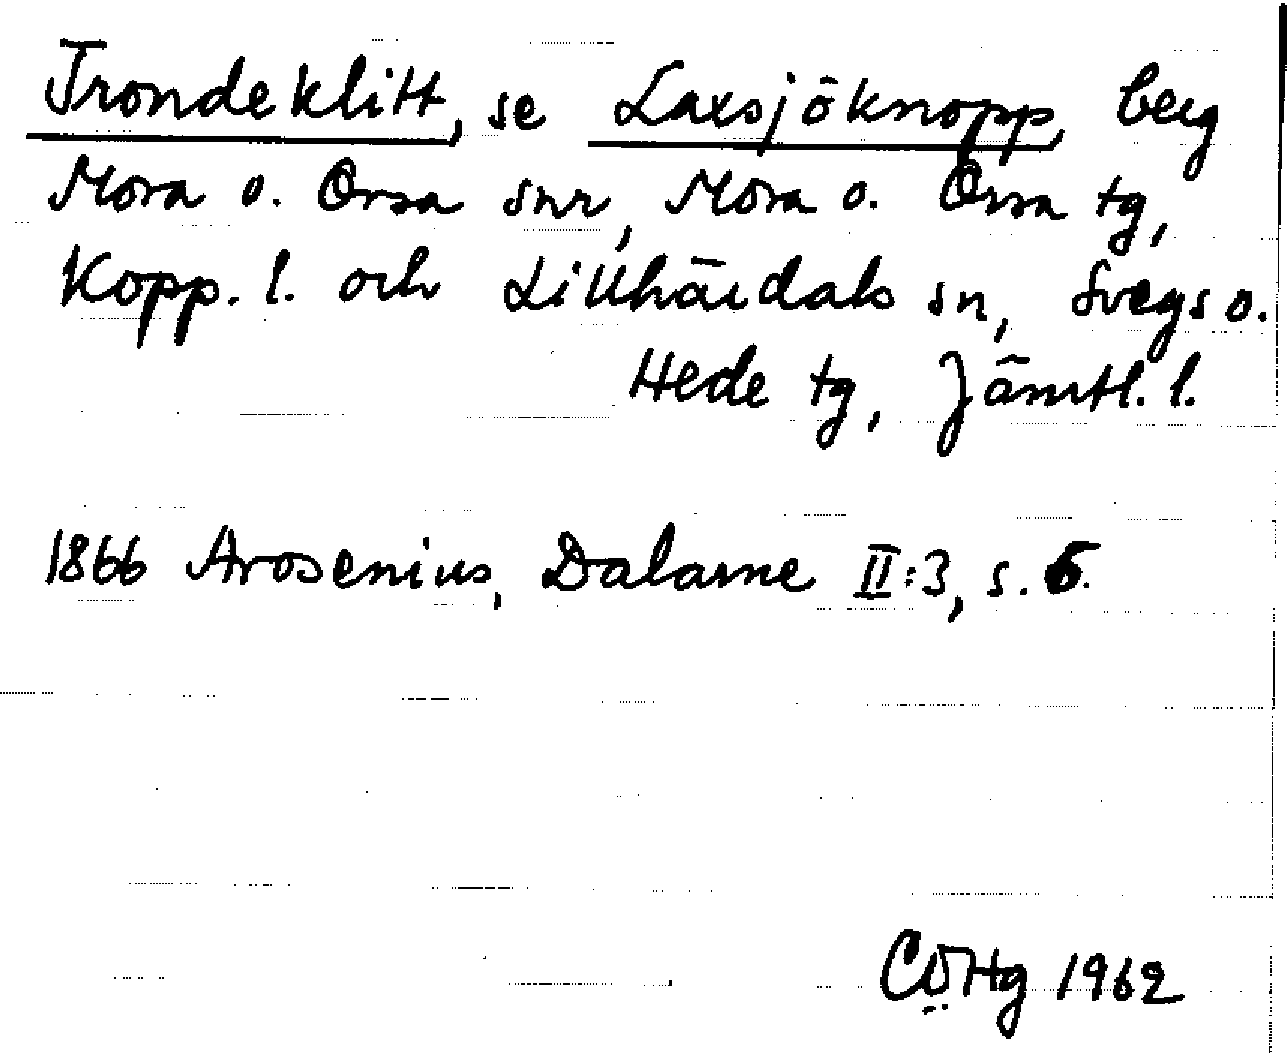 Trondeklitt, se Laxsjöknopp, berg
Mora o. Orsa snr, Mora o. Orsa tg,
Kopp. l. och Lillhärdals sn, Svegs o.
Hede tg, Jämtl. l.
1866 Arosenius, Dalarne II:3, s. 6.
CÖHg 1962